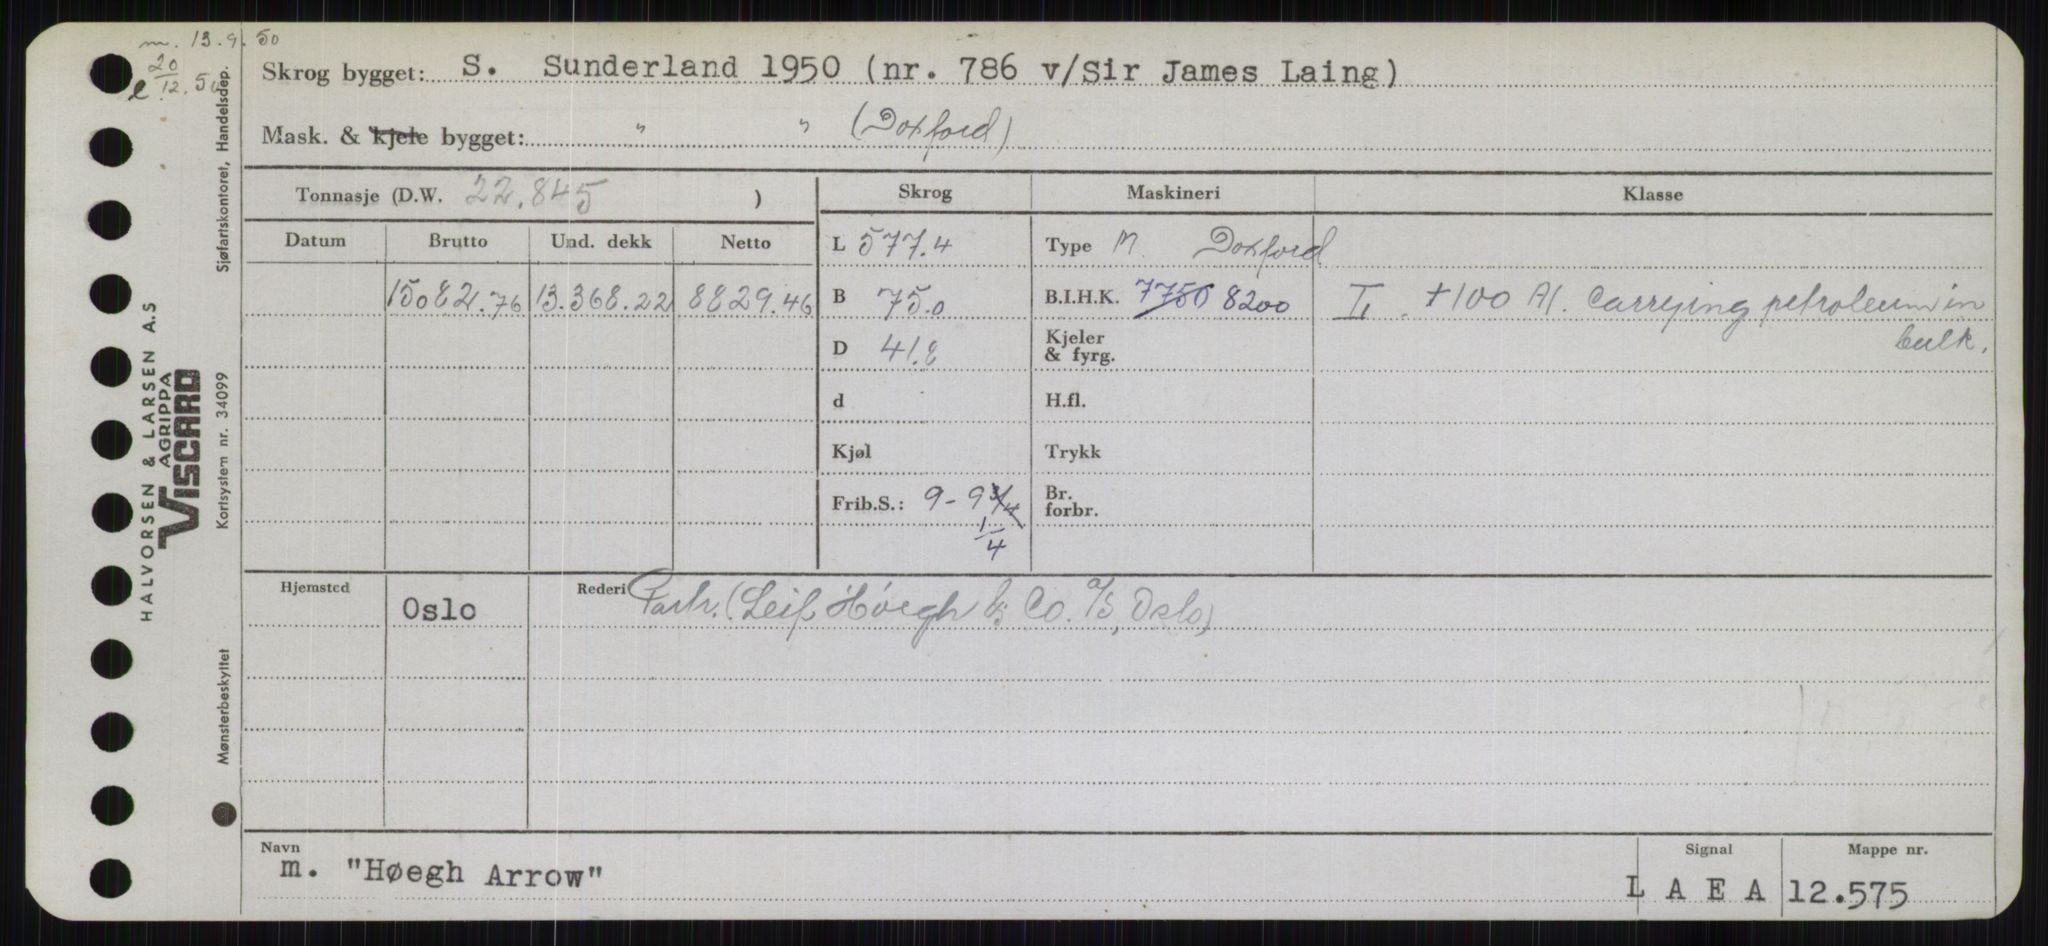 m. 13.9.50
e 20/12.50
Skrog bygget: S. Sunderland 1950 (nr. 786 v/Sir James Laing)
Mask. & kjele bygget: " " (Doxford)
Tonnasje (D.W. 22.845 )
Skrog Maskineri Klasse
Datum Brutto Und. dekk Netto
L 577.4 Type M. Doxford
15082.76 13.368.22 8829.46
B 75.0 B.I.H.K. 7750 8200
+100 A1. Carrying petroleum in
bulk.
D 41.8 Kjeler
& fyrg.
d H.fl.
Kjøl Trykk
Frib.S.: 9-9 3/4 Br.
forbr.
1/4
Hjemsted Oslo Rederi Partr. (Leif Höegh & Co. A/S, Oslo)
Navn
m. "Høegh Arrow"
Signal
L A E A
Mappe nr.
12.575
HALVORSEN & LARSEN A.S
AGRIPPA
VISCARD
Mønsterbeskyttet Kortsystem nr. 34099 Sjøfartskontoret, Handelsdep.